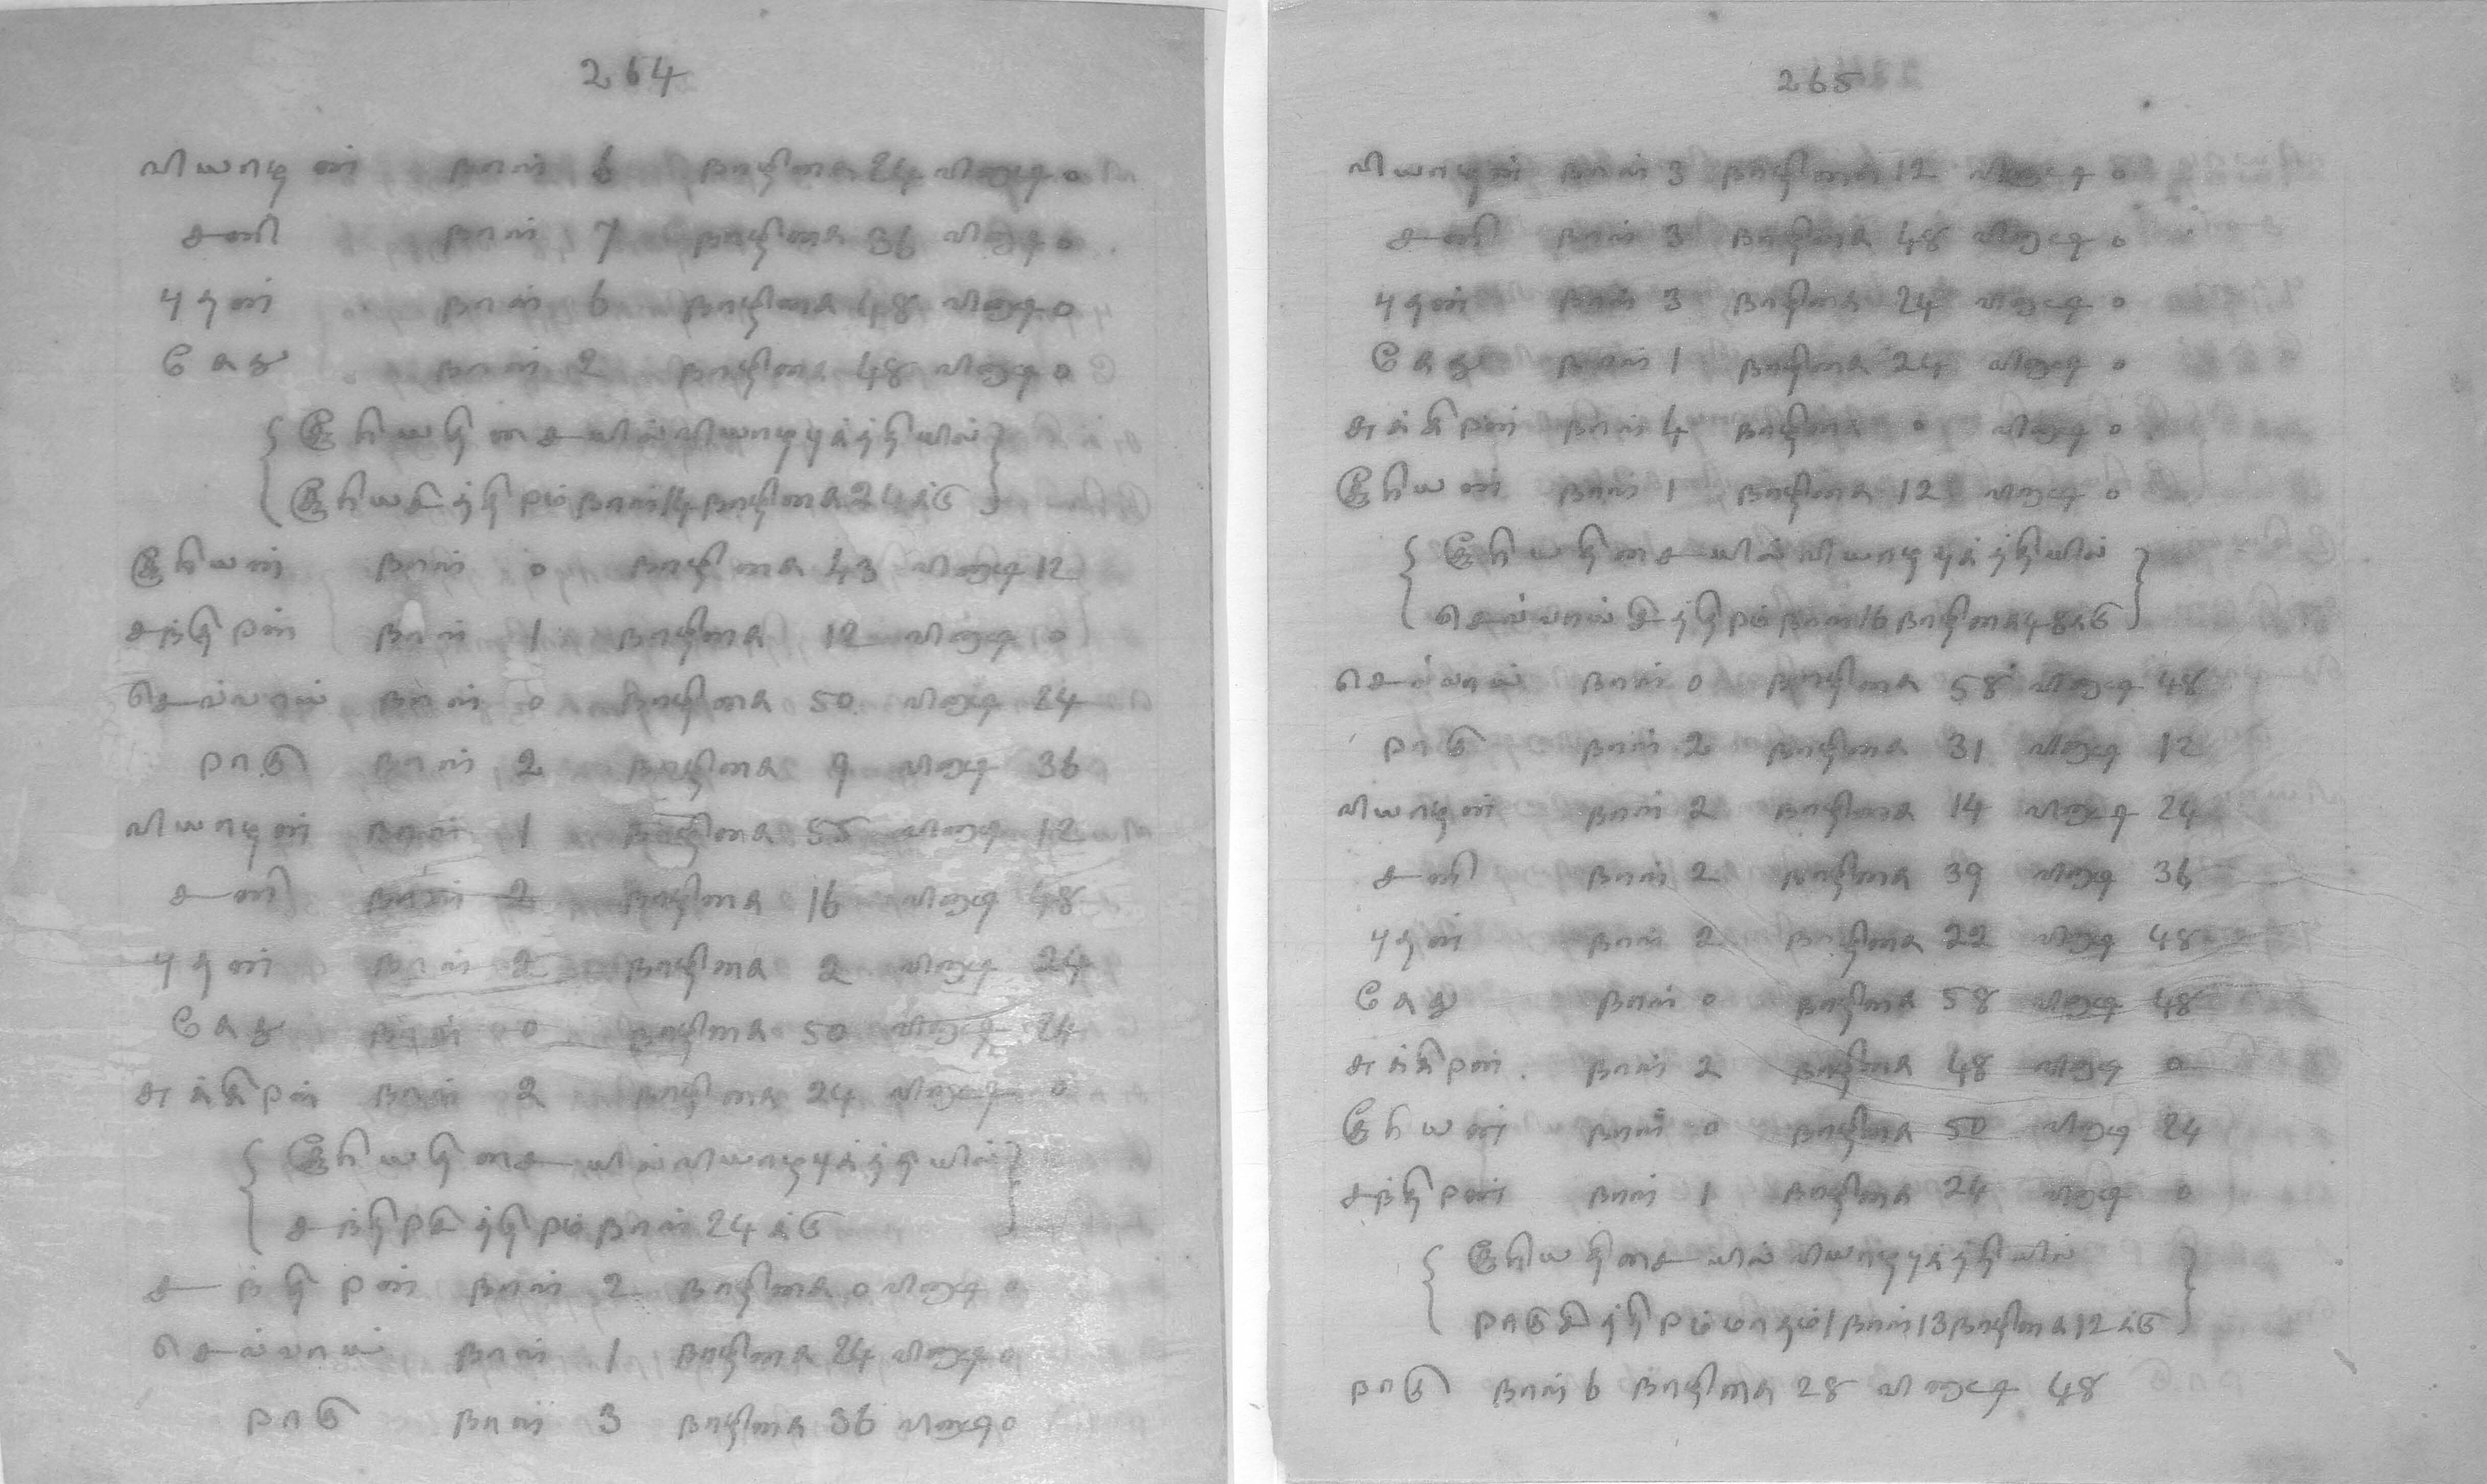 264
வியாழன் நாள் 6 நாழிகை 24 விநாழி 0
சனி நாள் 7 நாழிகை 36 விநாழி 0
புதன் நாள் 6 நாழிகை 48 விநாழி 0
கேது நாள் 2 நாழிகை 48 விநாழி 0
{ சூரியதிசையில் வியாழபுக்த்தியில்
சூரியசித்திரம் நாள் 14 நாழிகை 24 க்கு }
சூரியன் நாள் 0 நாழிகை 43 விநாழி 12
சந்திரன் நாள் 1 நாழிகை 12 விநாழி 0
செவ்வாய் நாள் 0 நாழிகை 50 விநாழி 24
ராகு நாள் 2 நாழிகை 9 விநாழி 36
வியாழன் நாள் 1 நாழிகை 55 விநாழி 12
சனி நாள் 2 நாழிகை 16 விநாழி 48
புதன் நாள் 2 நாழிகை 2 விநாழி 24
கேது நாள் 0 நாழிகை 50 விநாழி 24
சுக்கிரன் நாள் 2 நாழிகை 24 விநாழி 0
{ சூரியதிசையில் வியாழபுக்த்தியில்
சந்திரசித்திரம் நாள் 24 க்கு }
சந்திரன் நாள் 2 நாழிகை 0 விநாழி 0
செவ்வாய் நாள் 1 நாழிகை 24 விநாழி 0
ராகு நாள் 3 நாழிகை 36 விநாழி 0
265
வியாழன் நாள் 3 நாழிகை 12 விநாழி 0
சனி நாள் 3 நாழிகை 48 விநாழி 0
புதன் நாள் 3 நாழிகை 24 விநாழி 0
கேது நாள் 1 நாழிகை 24 விநாழி 0
சுக்கிரன் நாள் 4 நாழிகை 0 விநாழி 0
சூரியன் நாள் 1 நாழிகை 12 விநாழி 0
{ சூரியதிசையில் வியாழபுக்த்தியில்
செவ்வாய்சித்திரம் நாள் 16 நாழிகை 48 க்கு }
செவ்வாய் நாள் 0 நாழிகை 58 விநாழி 48
ராகு நாள் 2 நாழிகை 31 விநாழி 12
வியாழன் நாள் 2 நாழிகை 14 விநாழி 24
சனி நாள் 2 நாழிகை 39 விநாழி 36
புதன் நாள் 2 நாழிகை 22 விநாழி 48
கேது நாள் 0 நாழிகை 58 விநாழி 48
சுக்கிரன் நாள் 2 நாழிகை 48 விநாழி 0
சூரியன் நாள் 0 நாழிகை 50 விநாழி 24
சந்திரன் நாள் 1 நாழிகை 24 விநாழி 0
{ சூரியதிசையில் வியாழபுக்த்தியில்
ராகுசித்திரம் மாதம் 1 நாள் 13 நாழிகை 12 க்கு }
ராகு நாள் 6 நாழிகை 28 விநாழி 48